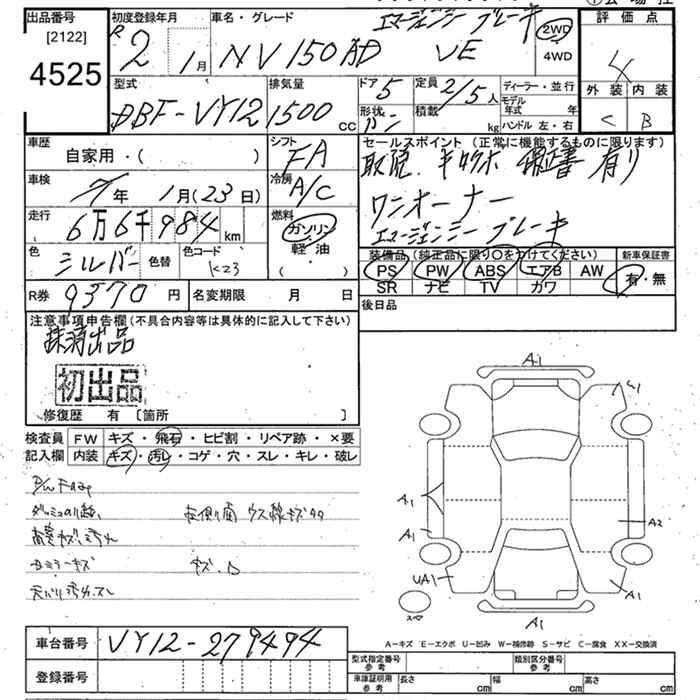 出品番号
[2122]
4525
初度登録年月
R2 1月
車名・グレード
エマージェンシーブレーキ
NV150AD VE
2WD
4WD
評価点
4
外装 内装
C B
型式
DBF-VY12
排気量
1500 cc
ドア 5
形状 バン
定員 2/5 人
積載 kg
ディーラー・並行
モデル年式 年
ハンドル 左・右
車歴
自家用・( )
シフト
FA
セールスポイント (正常に機能するものに限ります)
取説、 保証書 有り
ワンオーナー
エマージェンシーブレーキ
車検
7年 1月(23日)
冷房
A/C
走行
6万6千984 km
燃料
ガソリン
軽・油
( )
色
シルバー
色替
色コード
K23
装備品(純正品に限り〇をつけてください)
PS PW ABS エアB AW
SR ナビ TV カワ
新車保証書
有・無
R券 9370 円
名変期限 月 日
後日品
注意事項申告欄(不具合内容等は具体的に記入して下さい)
抹消出品
初出品
修復歴 有 〔箇所 〕
検査員 FW キズ・飛石・ヒビ割・リペア跡・×要
記入欄 内装 キズ・汚レ・コゲ・穴・スレ・キレ・破レ
左側面 ウス線キズ
キズ
A1
A1
A1
A1
A2
UA1
A1
スペア
A1
A=キズ E=エクボ U=凹み W=補修跡 S=サビ C=腐食 XX=交換済
車台番号 VY12-279494
登録番号
型式指定番号 参考
類別区分番号 参考
車庫証明用 参考
長さ cm 幅 cm 高さ cm